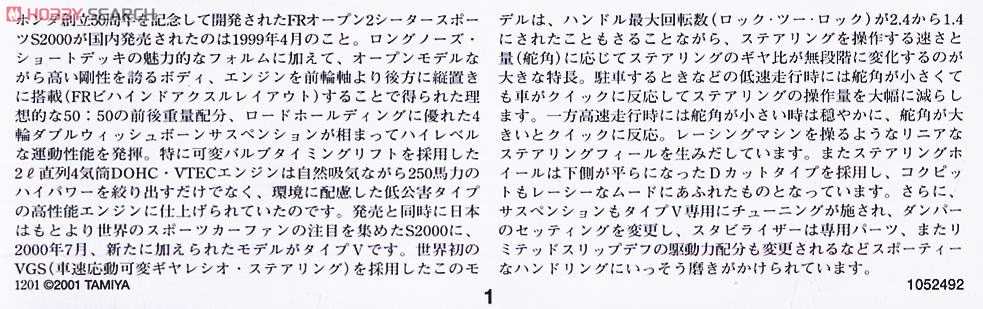 HOBBY SEARCH
ホンダ創立50周年を記念して開発されたFRオープン2シータースポー
ツS2000が国内発売されたのは1999年4月のこと。ロングノーズ・
ショートデッキの魅力的なフォルムに加えて、オープンモデルな
がら高い剛性を誇るボディ、エンジンを前輪軸より後方に縦置き
に搭載(FRビハインドアクスルレイアウト)することで得られた理
想的な50：50の前後重量配分、ロードホールディングに優れた4
輪ダブルウィッシュボーンサスペンションが相まってハイレベル
な運動性能を発揮。特に可変バルブタイミングリフトを採用した
2ℓ直列4気筒DOHC・VTECエンジンは自然吸気ながら250馬力の
ハイパワーを絞り出すだけでなく、環境に配慮した低公害タイプ
の高性能エンジンに仕上げられていたのです。発売と同時に日本
はもとより世界のスポーツカーファンの注目を集めたS2000に、
2000年7月、新たに加えられたモデルがタイプVです。世界初の
VGS(車速応動可変ギヤレシオ・ステアリング)を採用したこのモ
デルは、ハンドル最大回転数(ロック・ツー・ロック)が2.4から1.4
にされたこともさることながら、ステアリングを操作する速さと
量(舵角)に応じてステアリングのギヤ比が無段階に変化するのが
大きな特長。駐車するときなどの低速走行時には舵角が小さくて
も車がクイックに反応してステアリングの操作量を大幅に減らし
ます。一方高速走行時には舵角が小さい時は穏やかに、舵角が大
きいとクイックに反応。レーシングマシンを操るようなリニアな
ステアリングフィールを生みだしています。またステアリングホ
イールは下側が平らになったDカットタイプを採用し、コクピッ
トもレーシーなムードにあふれたものとなっています。さらに、
サスペンションもタイプV専用にチューニングが施され、ダンパー
のセッティングを変更し、スタビライザーは専用パーツ、またリ
ミテッドスリップデフの駆動力配分も変更されるなどスポーティー
なハンドリングにいっそう磨きがかけられています。
1201 ©2001 TAMIYA
1
1052492